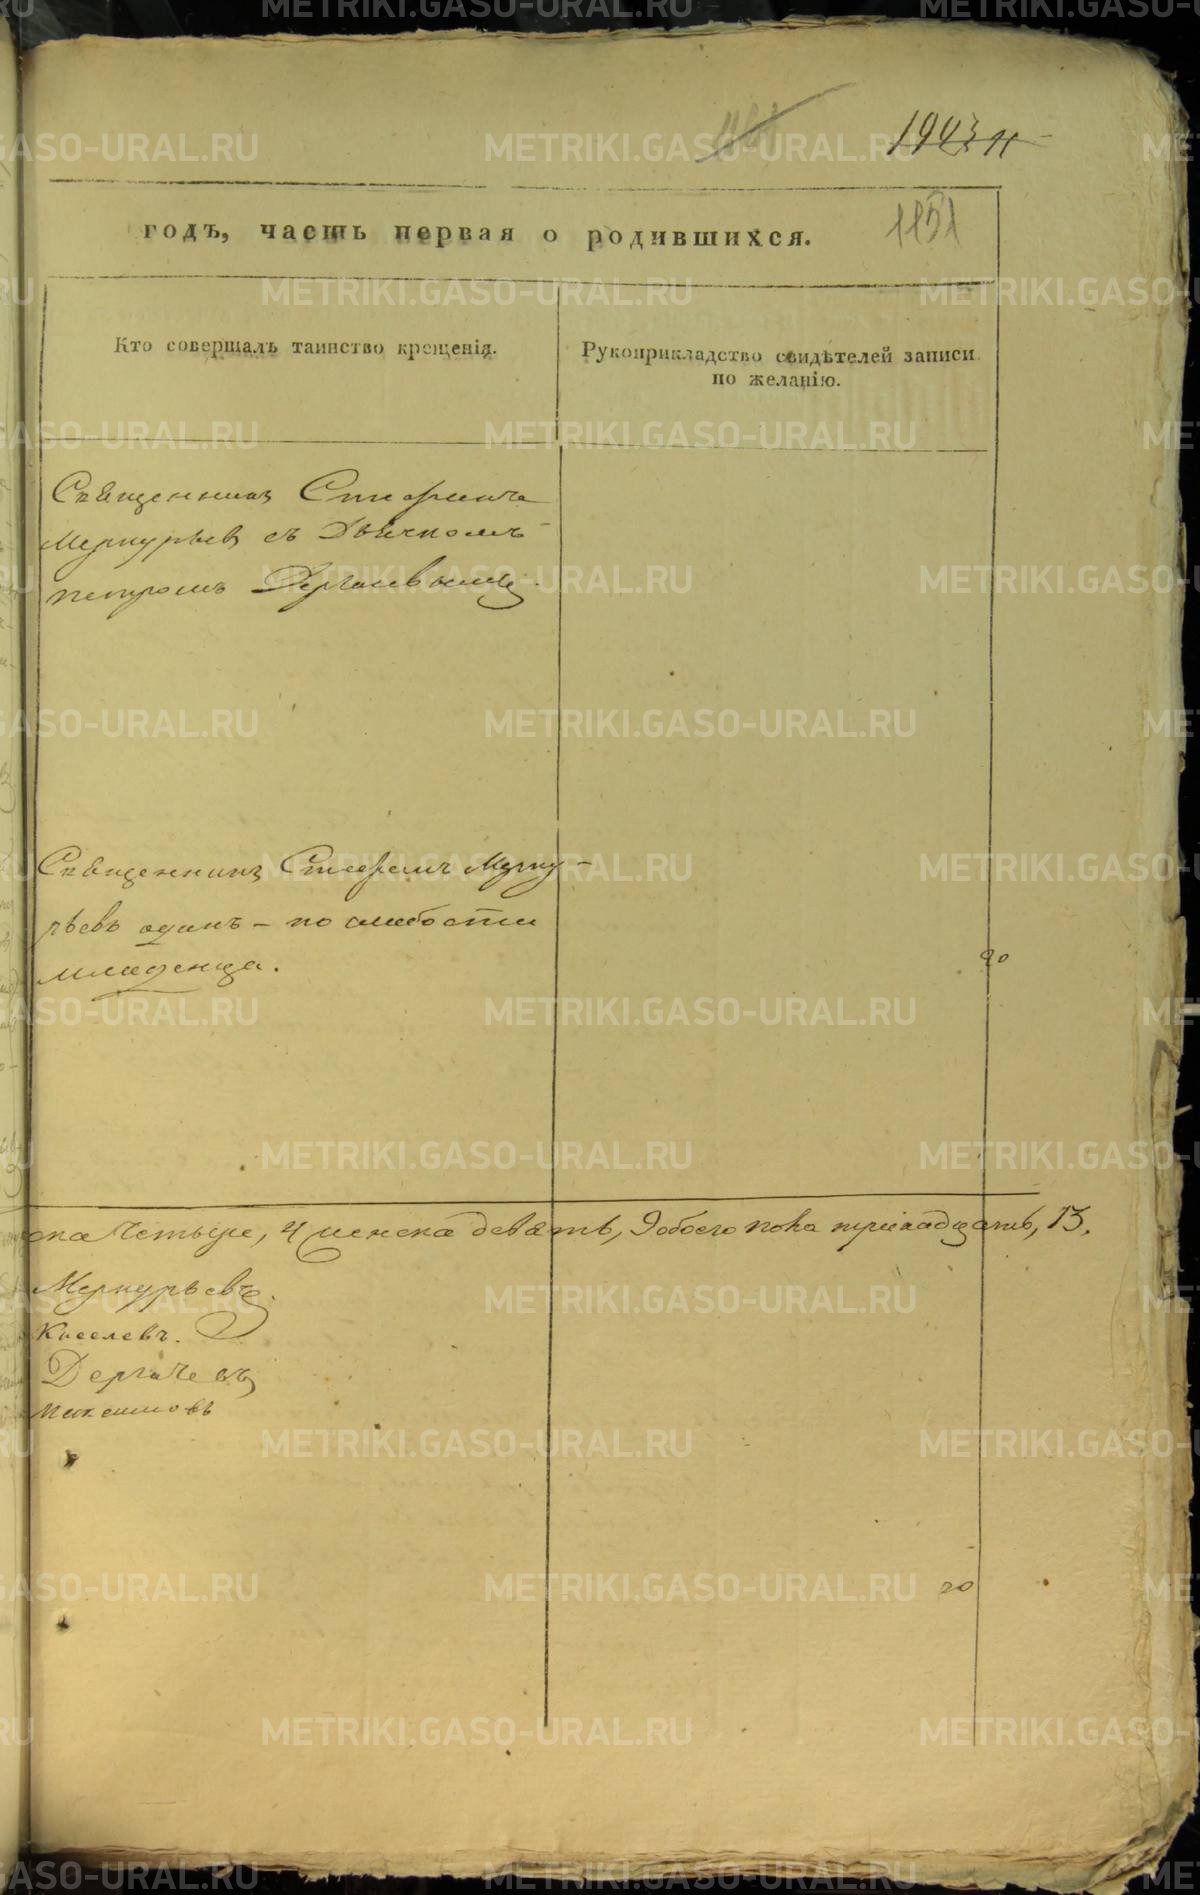 1943 11
1151
годъ, часть первая о родившихся.
Кто совершалъ таинство крещенія.
Рукоприкладство свидѣтелей записи
по желанію.
Священникъ Стефанъ
Меркурьевъ съ Дьячкомъ
петромъ Дергачевымъ.
Священникъ Стефанъ Мерку-
рьевъ одинъ – по слабости
младенца.
20
ска Четыре, 4 женска девять, 9 обоего пола тринадцать, 13.
Меркурьевъ.
Киселевъ.
Дергачевъ
Максимовъ
20
METRIKI.GASO-URAL.RU